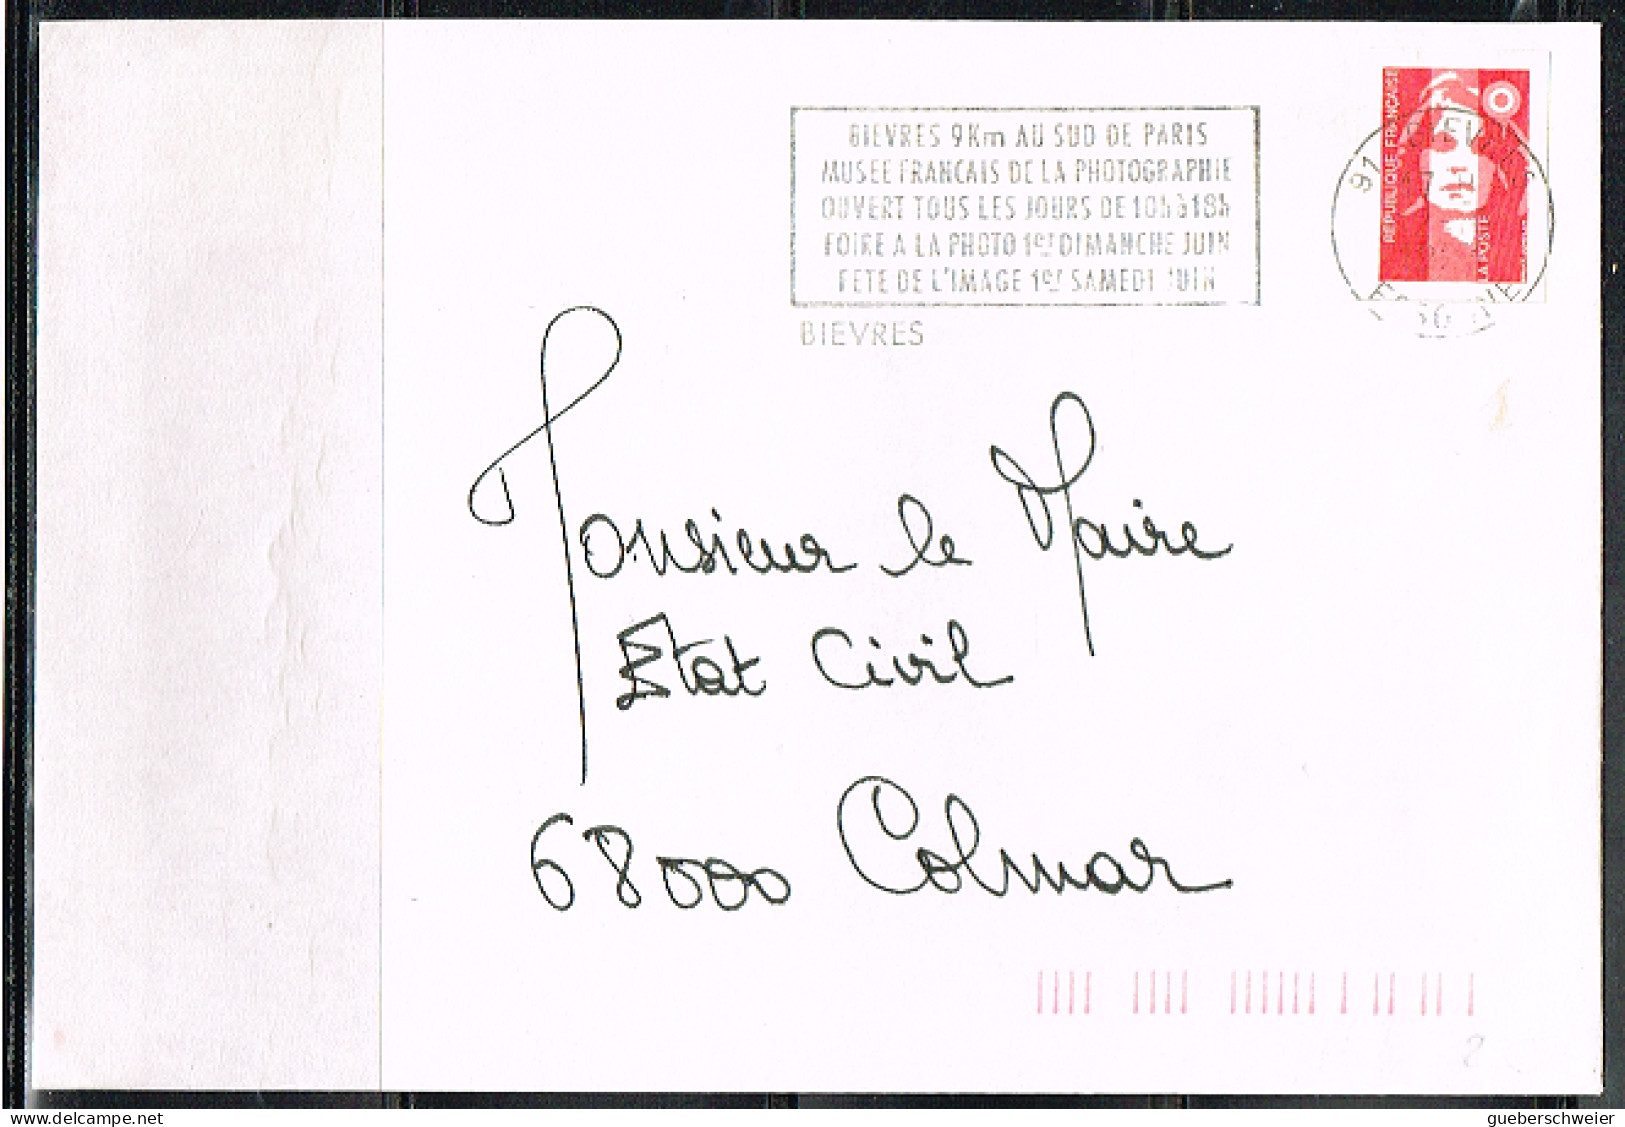 BIEVRES 9Km AU SUD DE PARIS
MUSEE FRANCAIS DE LA PHOTOGRAPHIE
OUVERT TOUS LES JOURS DE 10h à 18h
FOIRE A LA PHOTO 1er DIMANCHE JUIN
FETE DE L'IMAGE 1er SAMEDI JUIN
BIEVRES
91 BIEVRES
ESSONNE
REPUBLIQUE FRANÇAISE
LA POSTE
Monsieur le Maire
Etat Civil
68000 Colmar
delcampe.net
gueberschweier